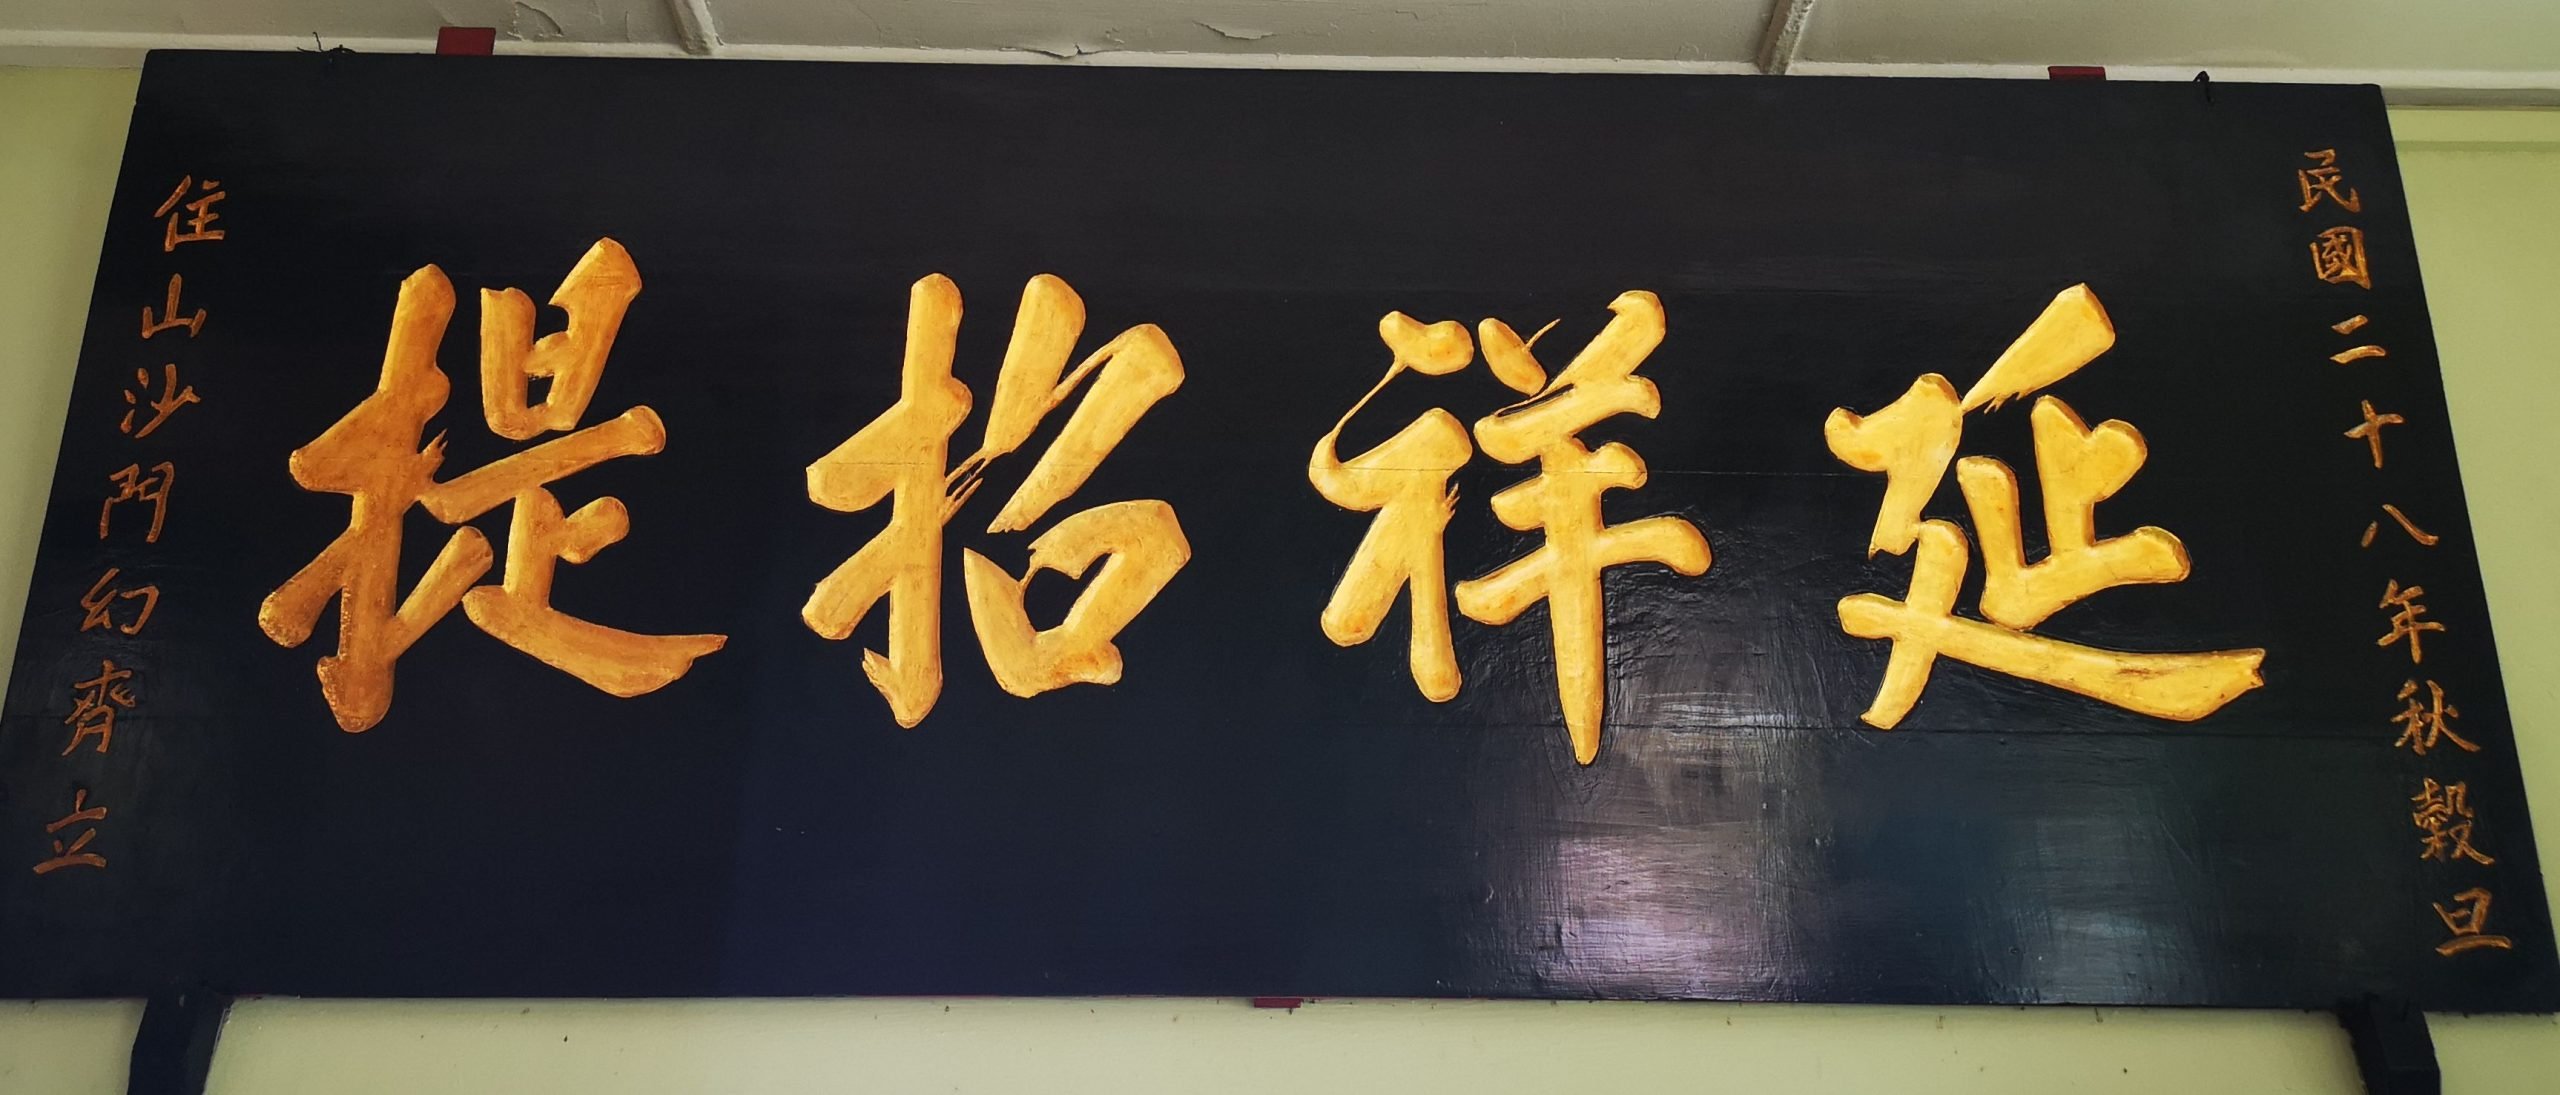 民國二十八年秋穀旦
延祥招提
住山沙門幻齊立